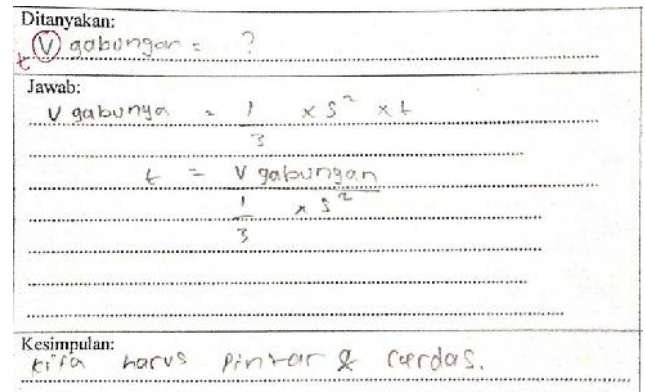 Ditanyakan:
t V gabungan = ?
Jawab:
V gabunga = 1/3 × s² × t
t = V gabungan / 1/3 × s²
Kesimpulan:
kita harus pintar & cerdas.